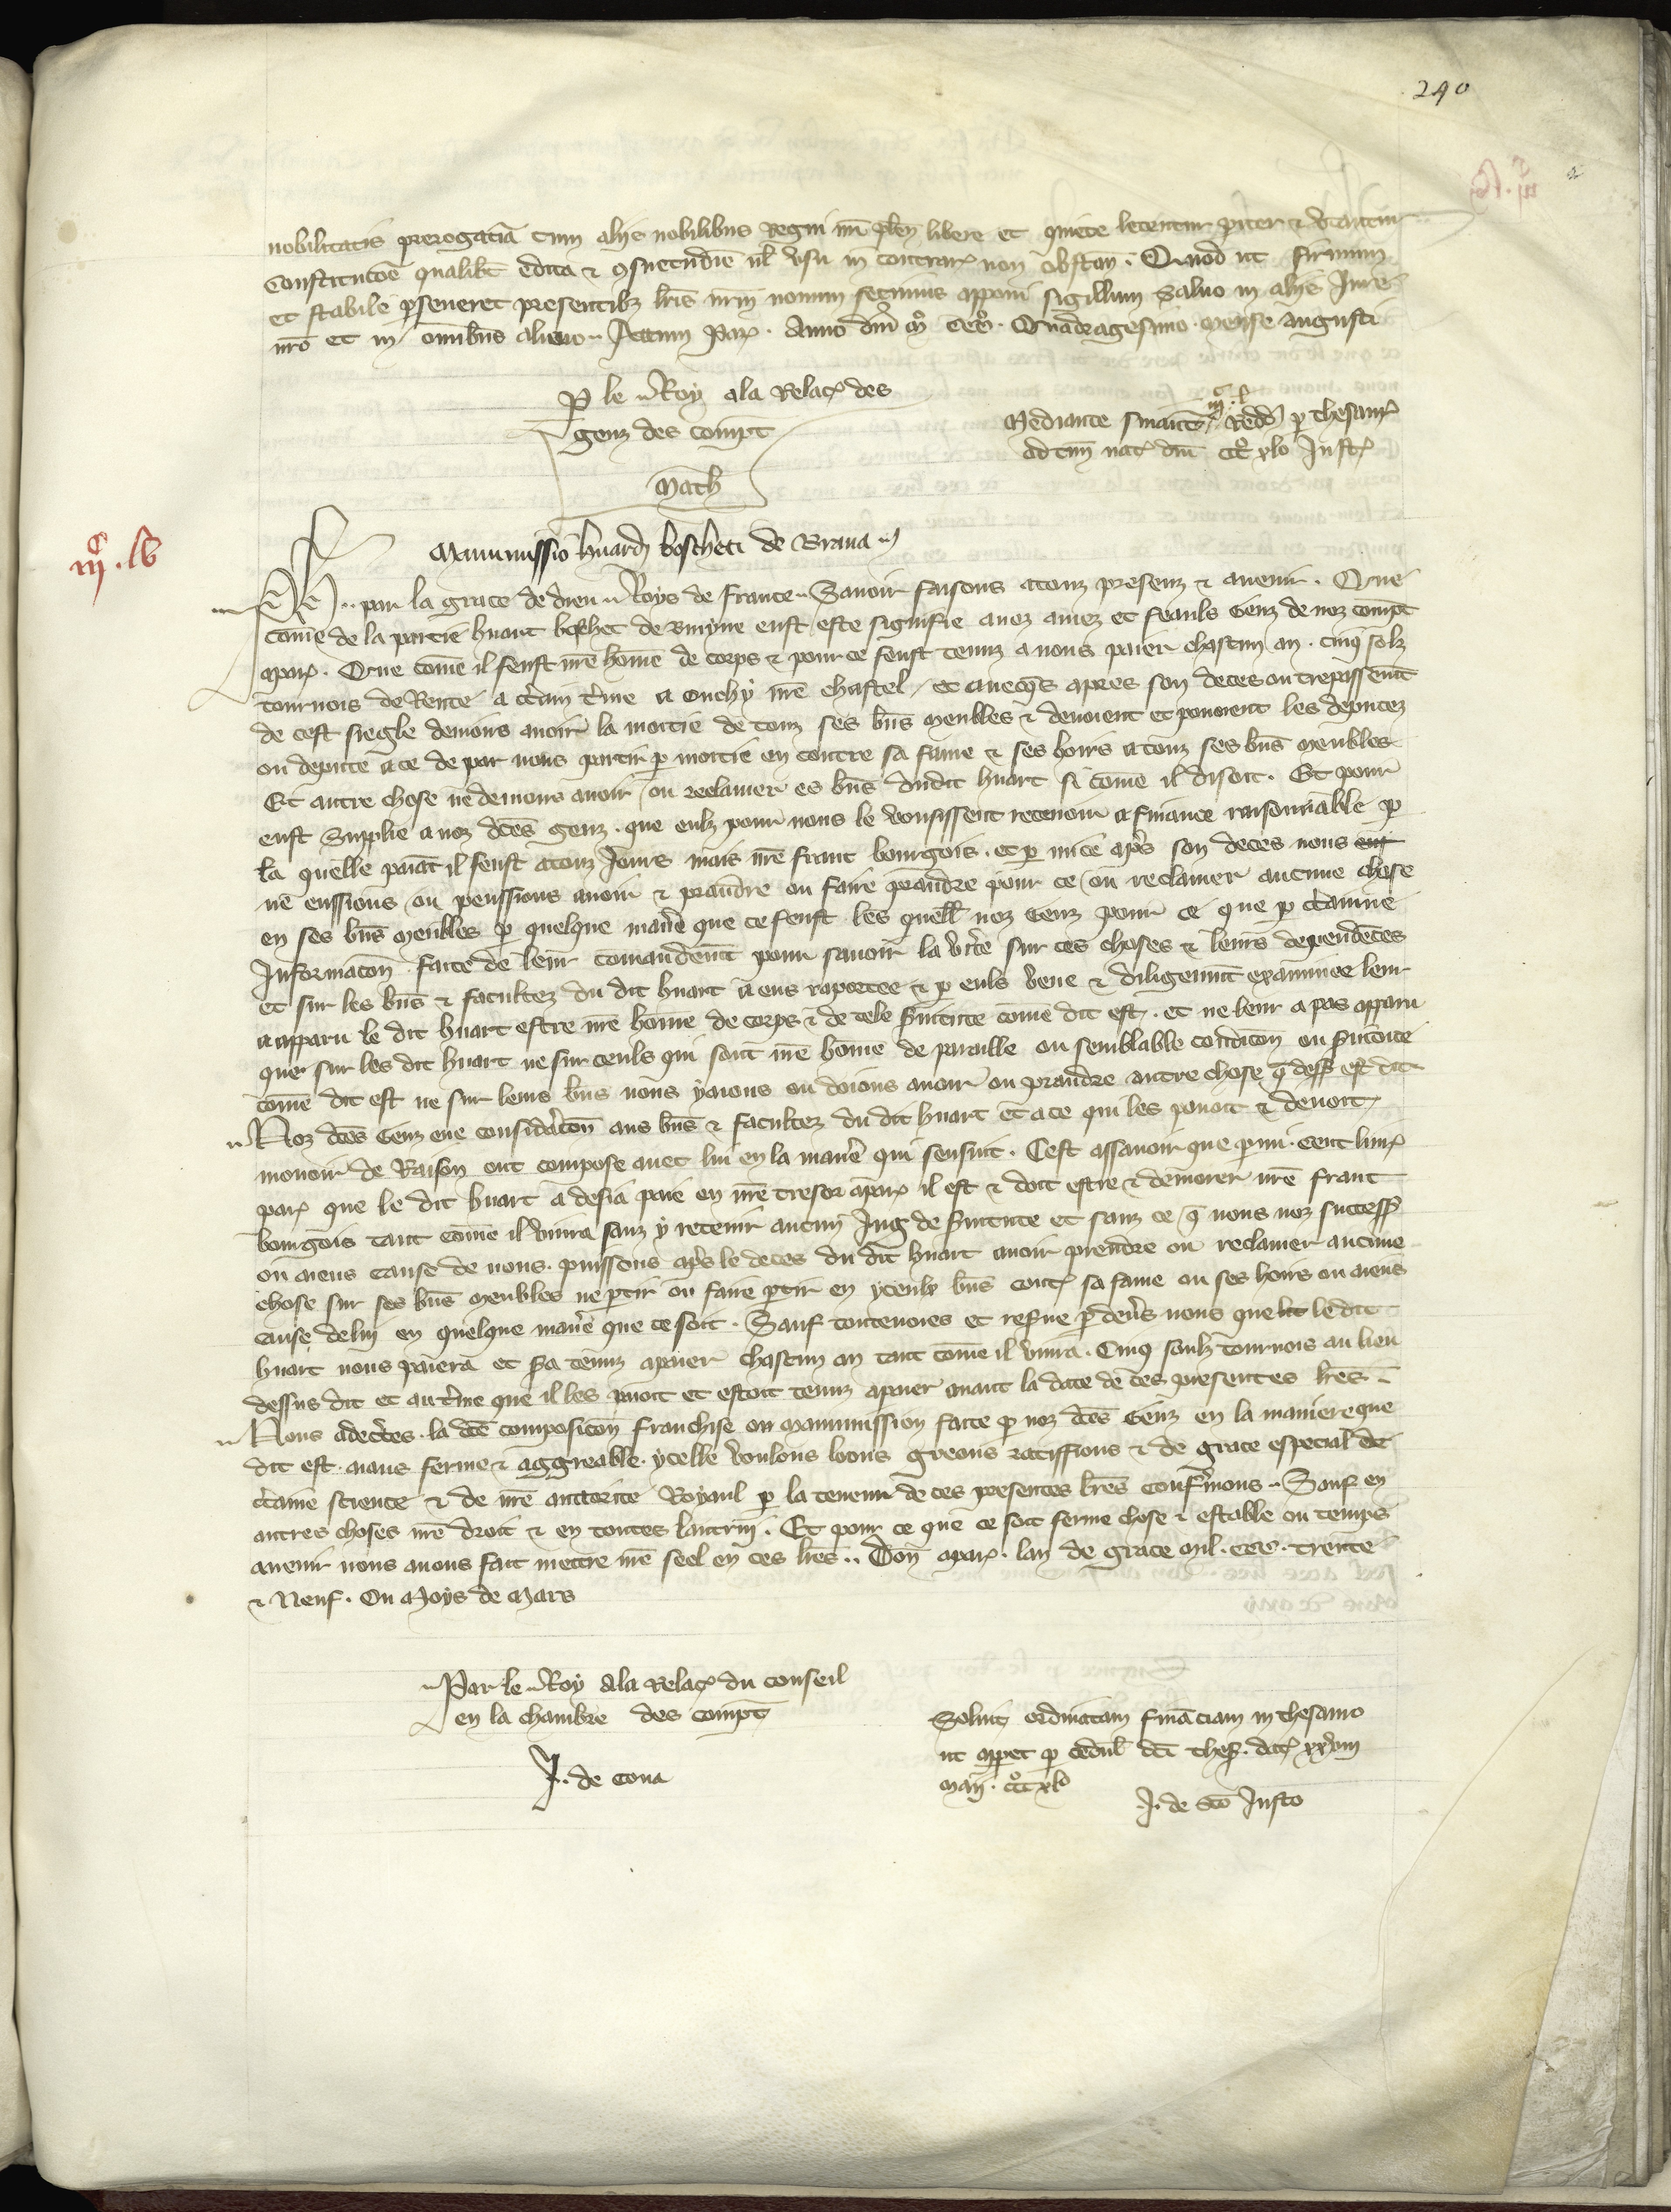 240
nobilitatis prerogatiã cum alijs nobilibus Regni nr̃i plen̄ libere et quiete letentur pariter & utantur
Constitutoẽ qualibet edita & consuetudĩe ul̃ usu in contrar̃ non obstan̄. Quod ut firmum
et stabile perseveret presentibz lr̃is nr̃m novum fecimus apponi sigillum Salvo in aliis Jure
nr̃o et in om̃ibus alieno. Actum Par̃. Anno dm̃ M° CCC°. Quadragesimo. Mense Augusti
P le Roy a la Relac̃ des
genz des compt̃
Math
Mediante financ̃ Redd̃ p thesaur̃
ad tm̃ nat̃ dm̃ CCC° xlo Just̃
iijᶜ. lb
Manumissio huardi boscheti de Brana
Ph.. par la grace de dieu Roys de France. Savoir faisons a touz presenz & avenir. Que
come de la partie huart boschet de Bruyne eust este signifie a noz amez et feauls Genz de noz compt̃
a par̃. Que come il feust nr̃e home de corps & pour ce feust tenuz a nous paier chascun an. cinq solz
tournois de Rente a ct̃ain t̃me a Ouchy nr̃e chastel, et avecq̃s apres son deces ou trepassem̃t
de cest siegle devions avoir la moitie de touz ses bñs meubles & devoient et povoient les deputez
ou depute a ce de par nous partir p moitie en contre sa fame & ses hoirs a touz ses bñs meubles
Et autre chose ne devions avoir ou reclamer es bñs dudit huart si come il disoit. Et pour
eust Supplie a noz dc̃es genz. que eulz pour nous le vousissent recevoir a finance raisonnable p
la quelle paiãt il feust a touz Jours mais nr̃e franc bourgois. et p mi ce ap̃s son deces nous
ne eussions ou peussions avoir & prandre ou faire prandre pour ce ou reclamer aucune chose
en ses bñs meubles p quelque manie̾ que ce feust les quell̃ noz Genz pour ce que p ct̃aine
Informac̃on faite de leur comandem̃t pour savoir la v̾ite sur ces choses & leurs dependẽces
et sur les bñs & facultez du dit huart a eus raportee & p euls veue & diligenm̃t examinee leur
a apparu le dit huart estre nr̃e home de corps & de tele s̾vitute come dit est. et ne leur a pas apparu
que sur les dit huart ne sur ceuls qui sont nr̃e home de paraille ou semblable condic̃on ou s̾vitute
come dit est ne sur leurs bñs nous y aions ou doions avoir ou prandre autre chose q̃ dess̃ est dit
Noz dc̃es Genz eue considac̃on aus bñs & facultez du dit huart et a ce qui les povoit & devoit
movoir de Raison ont compose avec lui en la manie̾ qui sensuit. Cest assavoir que p mi. cent livr̃
par̃ que le dit huart a desia paie en nr̃e tresor a par̃ il est & doit estre & demorer nr̃e franc
bourgois tant come il vivra sanz y retenir aucun Jug de s̾vitute et sanz ce q̃ nous noz success̃
ou aiens cause de nous. puissons ap̃s le deces du dit huart avoir prendre ou reclamer aucune
chose sur ses bñs meubles ne partir ou faire partir en yceulx bñs cont̃ sa fame ou ses hoirs ou aiens
cause de luy en quelque manie̾ que ce soit. Sauf toutevoies et reserve p dev̾s nous que le dit
huart nous paiera et s̾a tenuz a paier chascun an tant come il vivra. Cinq soulz tournois au lieu
dessus dit et au t̃me que il les paioit et estoit tenuz a paier avant la date de ces presentes lr̃es
Nous adec̾tes. la dc̃e composic̃on franchise ou manumission faite p noz dc̃es Genz en la maniere que
dit est. aians ferme & aggreable. ycelle voulons loons greons ratiffions & de grace especial de
ct̃aine science & de nr̃e auctorite Royaul p la teneur de ces presentes lr̃es Conf̾mons. Sauf en
autres choses nr̃e droit & en toutes lautruy. Et pour ce que ce soit ferme chose & estable ou temps
avenir nous avons fait mettre nr̃e seel en ces lr̃es.. Don̄ a par̃. lan de grace mil. CCC. trente
& Neuf. Ou Moys de Mars
Par le Roy a la Relac̃ du conseil
en la chambre des compt̃
J. de Cona
Solvit ordinatam financiam in thesauro
ut appet p cedul̃ dc̃i thes̃. dat̃ xxvm
Maij. CCC° xlo
J. de Sc̃o Justo